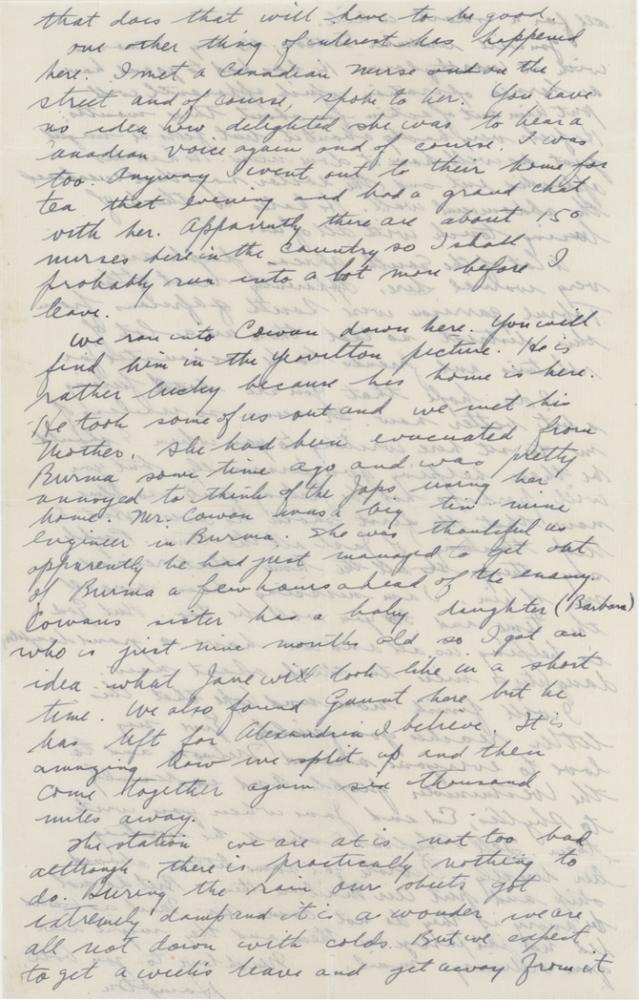 that does that will have to be good.
One other thing of interest has happened
here. I met a Canadian nurse out on the
street and of course, spoke to her. You have
no idea how delighted she was to hear a
Canadian voice again and of course. I was
too. Anyway I went out to their home for
tea that evening and had a grand chat
with her. Apparently there are about 150
nurses here in the country so I shall
probably run into a lot more before I
leave.
We ran into Cowan down here. You will
find him in the Yeovilton picture. He is
rather lucky because his home is here.
He took some of us out and we met his
Mother. She had been evacuated from
Burma some time ago and was pretty
annoyed to think of the Japs using her
home. Mr. Cowan was a big tin mine
engineer in Burma. She was thankful as
apparently he had just managed to get out
of Burma a few hours ahead of the enemy.
Cowans sister has a baby daughter (Barbara)
who is just nine months old so I got an
idea what Jane will look like in a short
time. We also found Gaunt here but he
has left for Alexandria I believe. It is
amazing how we split up and then
come together again six thousand
miles away.
The station we are at is not too bad
although there is practically nothing to
do. During the rain our sheets got
extremely damp and it is a wonder we are
all not down with colds. But we expect
to get a weeks leave and get away from it